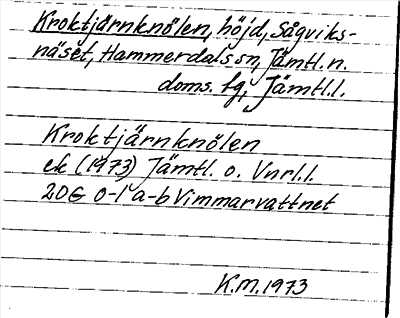 Kroktjärnknölen, höjd, Sågviks-
näset, Hammerdals sn, Jämtl. n.
doms. tg, Jämtl.l.
Kroktjärnknölen
ek (1973) Jämtl. o. Vnrl.l.
20G 0-1 a-b Vimmarvattnet
K.M. 1973